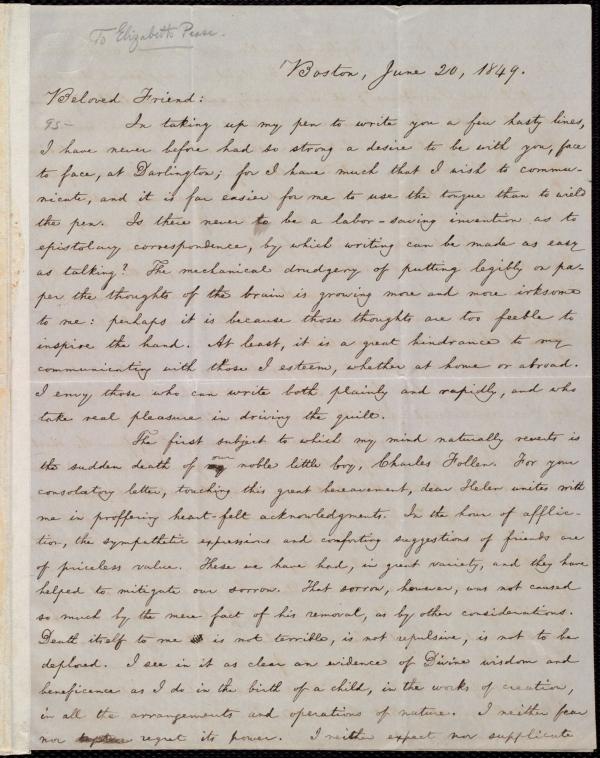 To Elizabeth Pease.
Boston, June 20, 1849.
Beloved Friend:
95 —
In taking up my pen to write you a few hasty lines,
I have never before had so strong a desire to be with you, face
to face, at Darlington; for I have much that I wish to commu-
nicate, and it is far easier for me to use the tongue than to wield
the pen. Is there never to be a labor-saving invention as to
epistolary correspondence, by which writing can be made as easy
as talking? The mechanical drudgery of putting legibly on pa-
per the thoughts of the brain is growing more and more irksome
to me: perhaps it is because those thoughts are too feeble to
inspire the hand. At least, it is a great hindrance to my
communicating with those I esteem, whether at home or abroad.
I envy those who can write both plainly and rapidly, and who
take real pleasure in driving the quill.
The first subject to which my mind naturally reverts is
the sudden death of our noble little boy, Charles Follen. For your
consolatory letter, touching this great bereavement, dear Helen unites with
me in proffering heart-felt acknowledgments. In the hour of afflic-
tion, the sympathetic expressions and comforting suggestions of friends are
of priceless value. These we have had, in great variety, and they have
helped to mitigate our sorrow. That sorrow, however, was not caused
so much by the mere fact of his removal, as by other considerations.
Death itself to me is not terrible, is not repulsive, is not to be
deplored. I see in it as clear an evidence of Divine wisdom and
beneficence as I do in the birth of a child, in the works of creation,
in all the arrangements and operations of nature. I neither fear
nor regret its power. I neither expect nor supplicate